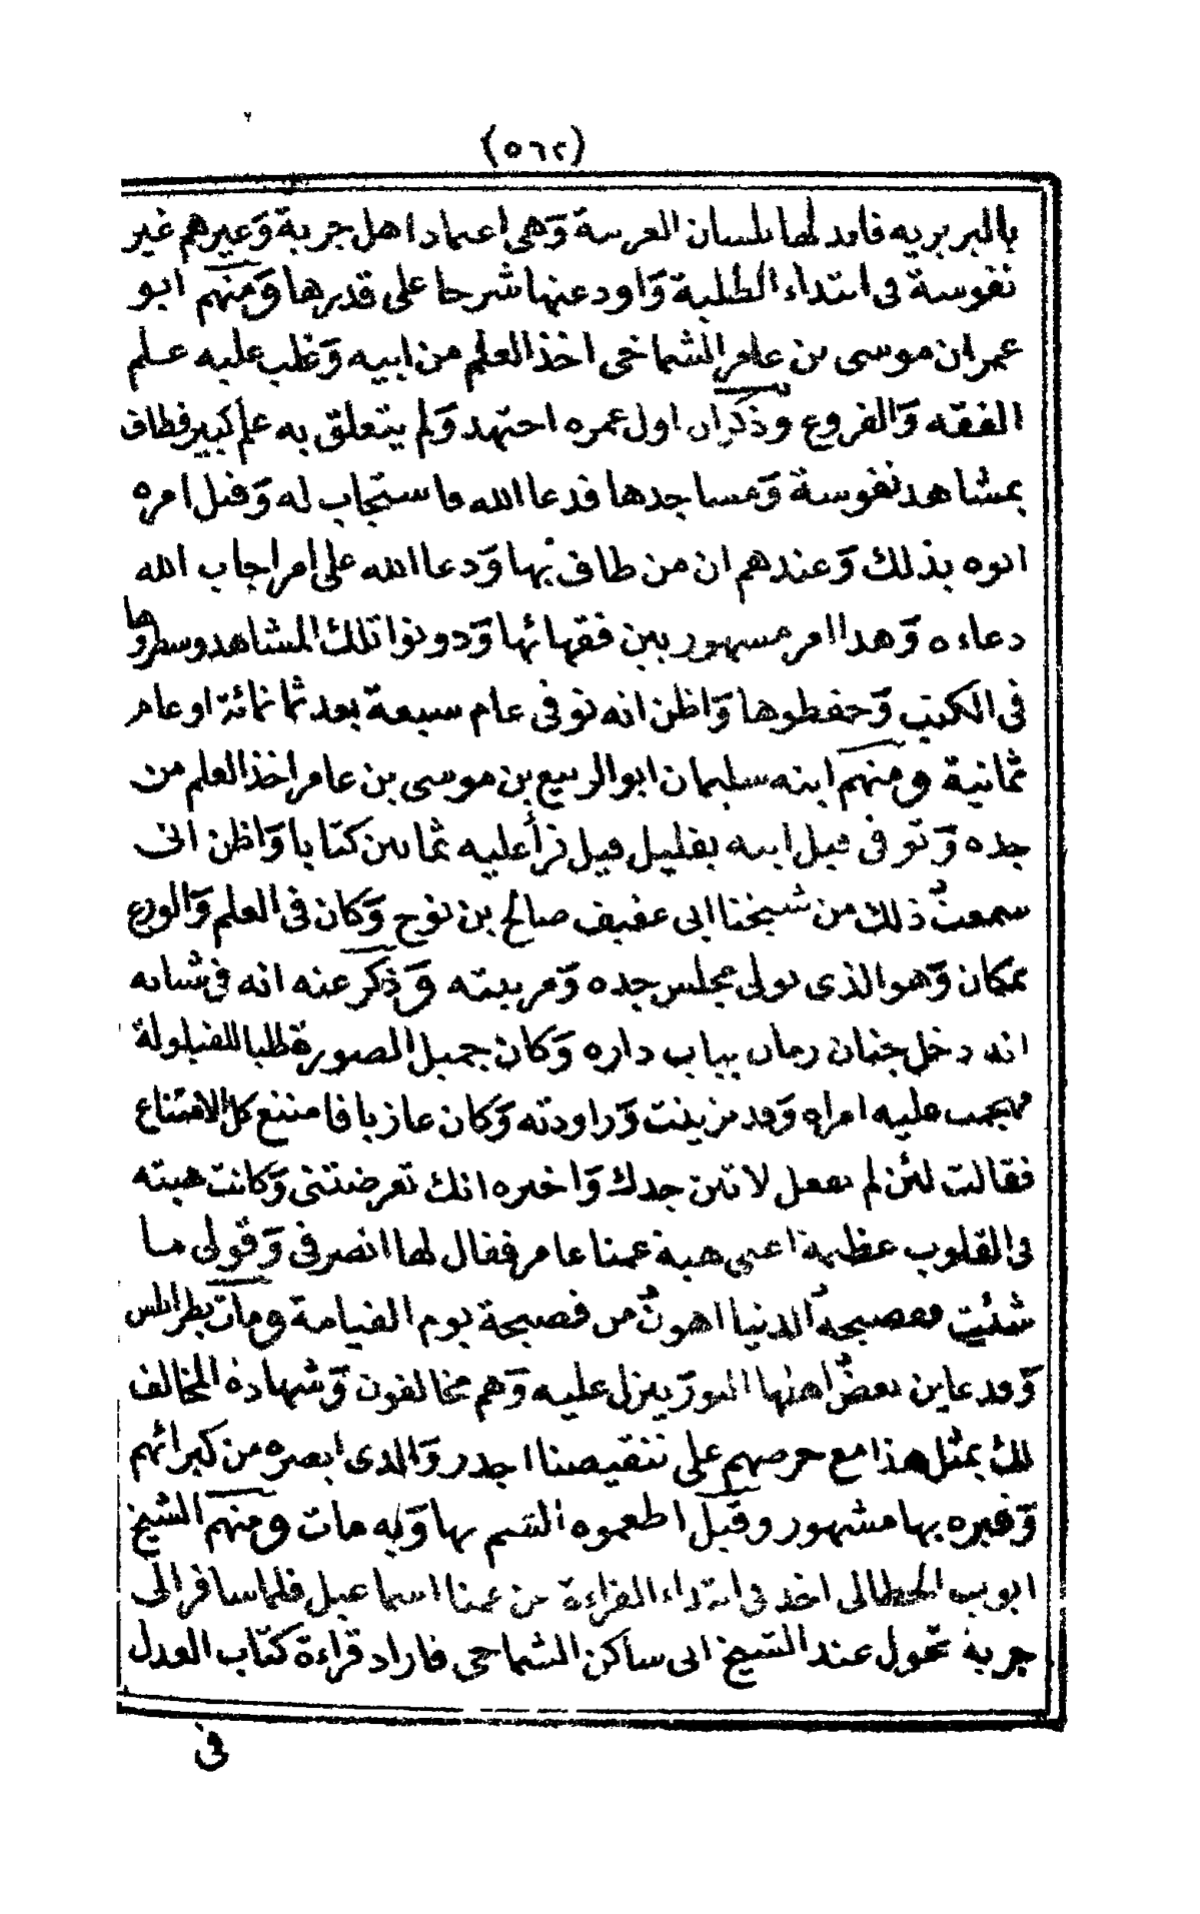 (٥٦٢)
بالبربرية فابدلها بلسان العربية وَهي اعتماد اهل جربة وَغيرهم غير
نفوسة في ابتداء الطلبة وَاودعنها شرحا على قدرها وَمنهم ابو
عمران موسى بن عامر الشماخي اخذ العلم من ابيه وَغلب عليه علم
الفقه وَالفروع وذكر ان اول عمره احتهد وَلم يتعلق به علم كبير فطاف
بمشاهد نفوسة وَمساجدها فدعا الله فاستجاب له وَقبل امره
ابوه بذلك وَعندهم ان من طاف بها وَدعا الله على امر اجاب الله
دعاءه وَهذا امر مشهور بين فقهائها وَدونوا تلك المشاهد وسطروها
في الكتب وَحفظوها وَاظن انه توفى عام سبعة بعد ثمانمائة او عام
ثمانية ومنهم ابنه سليمان ابو الربيع بن موسى بن عامر اخذ العلم من
جده وَتوفى قبل ابيه بقليل قيل قرأ عليه ثمانين كتابا وَاظن انى
سمعتُ ذلك من شيخنا ابى عفيف صالح بن نوح وَكان في العلم وَالورع
بمكان وَهو الذى تولى مجلس جده وَمرتبته وَذكر عنه انه في شبابه
انه دخل جنان رمان بباب داره وَكان جميل الصورة طلبا للقيلولة
فهجمت عليه امراة وَقد تزينت وَراودته وَكان عازبا فامتنع كل الامتناع
فقالت لئن لم تفعل لاتين جدك وَاخبره انك تعرضتنى وَكانت هيبته
في القلوب عظيمة اعنى هيبة عمنا عامر فقال لها انصرفى وَقولى ما
شئتِ ففصيحةُ الدنيا اهونُ من فصيحة يوم القيامة ومات بطرابلس
وَقد عاين بعضُ اهلها النورَ ينزل عليه وَهم مخالفون وَشهادة المخالف
لك بمثل هذا مع حرصهم على تنقيصنا اجدر وَالذى ابصره من كبرائهم
وَقبره بها مشهور وقيل اطعموه السم بها وَبه مات ومنهم الشيخ
ايوب الحطالى اخذ في ابتداء القراءة عن عمنا اسماعيل فلما سافر الى
جربة تحول عند الشيخ ابى ساكن الشماخى فاراد قراءة كتاب العدل
في